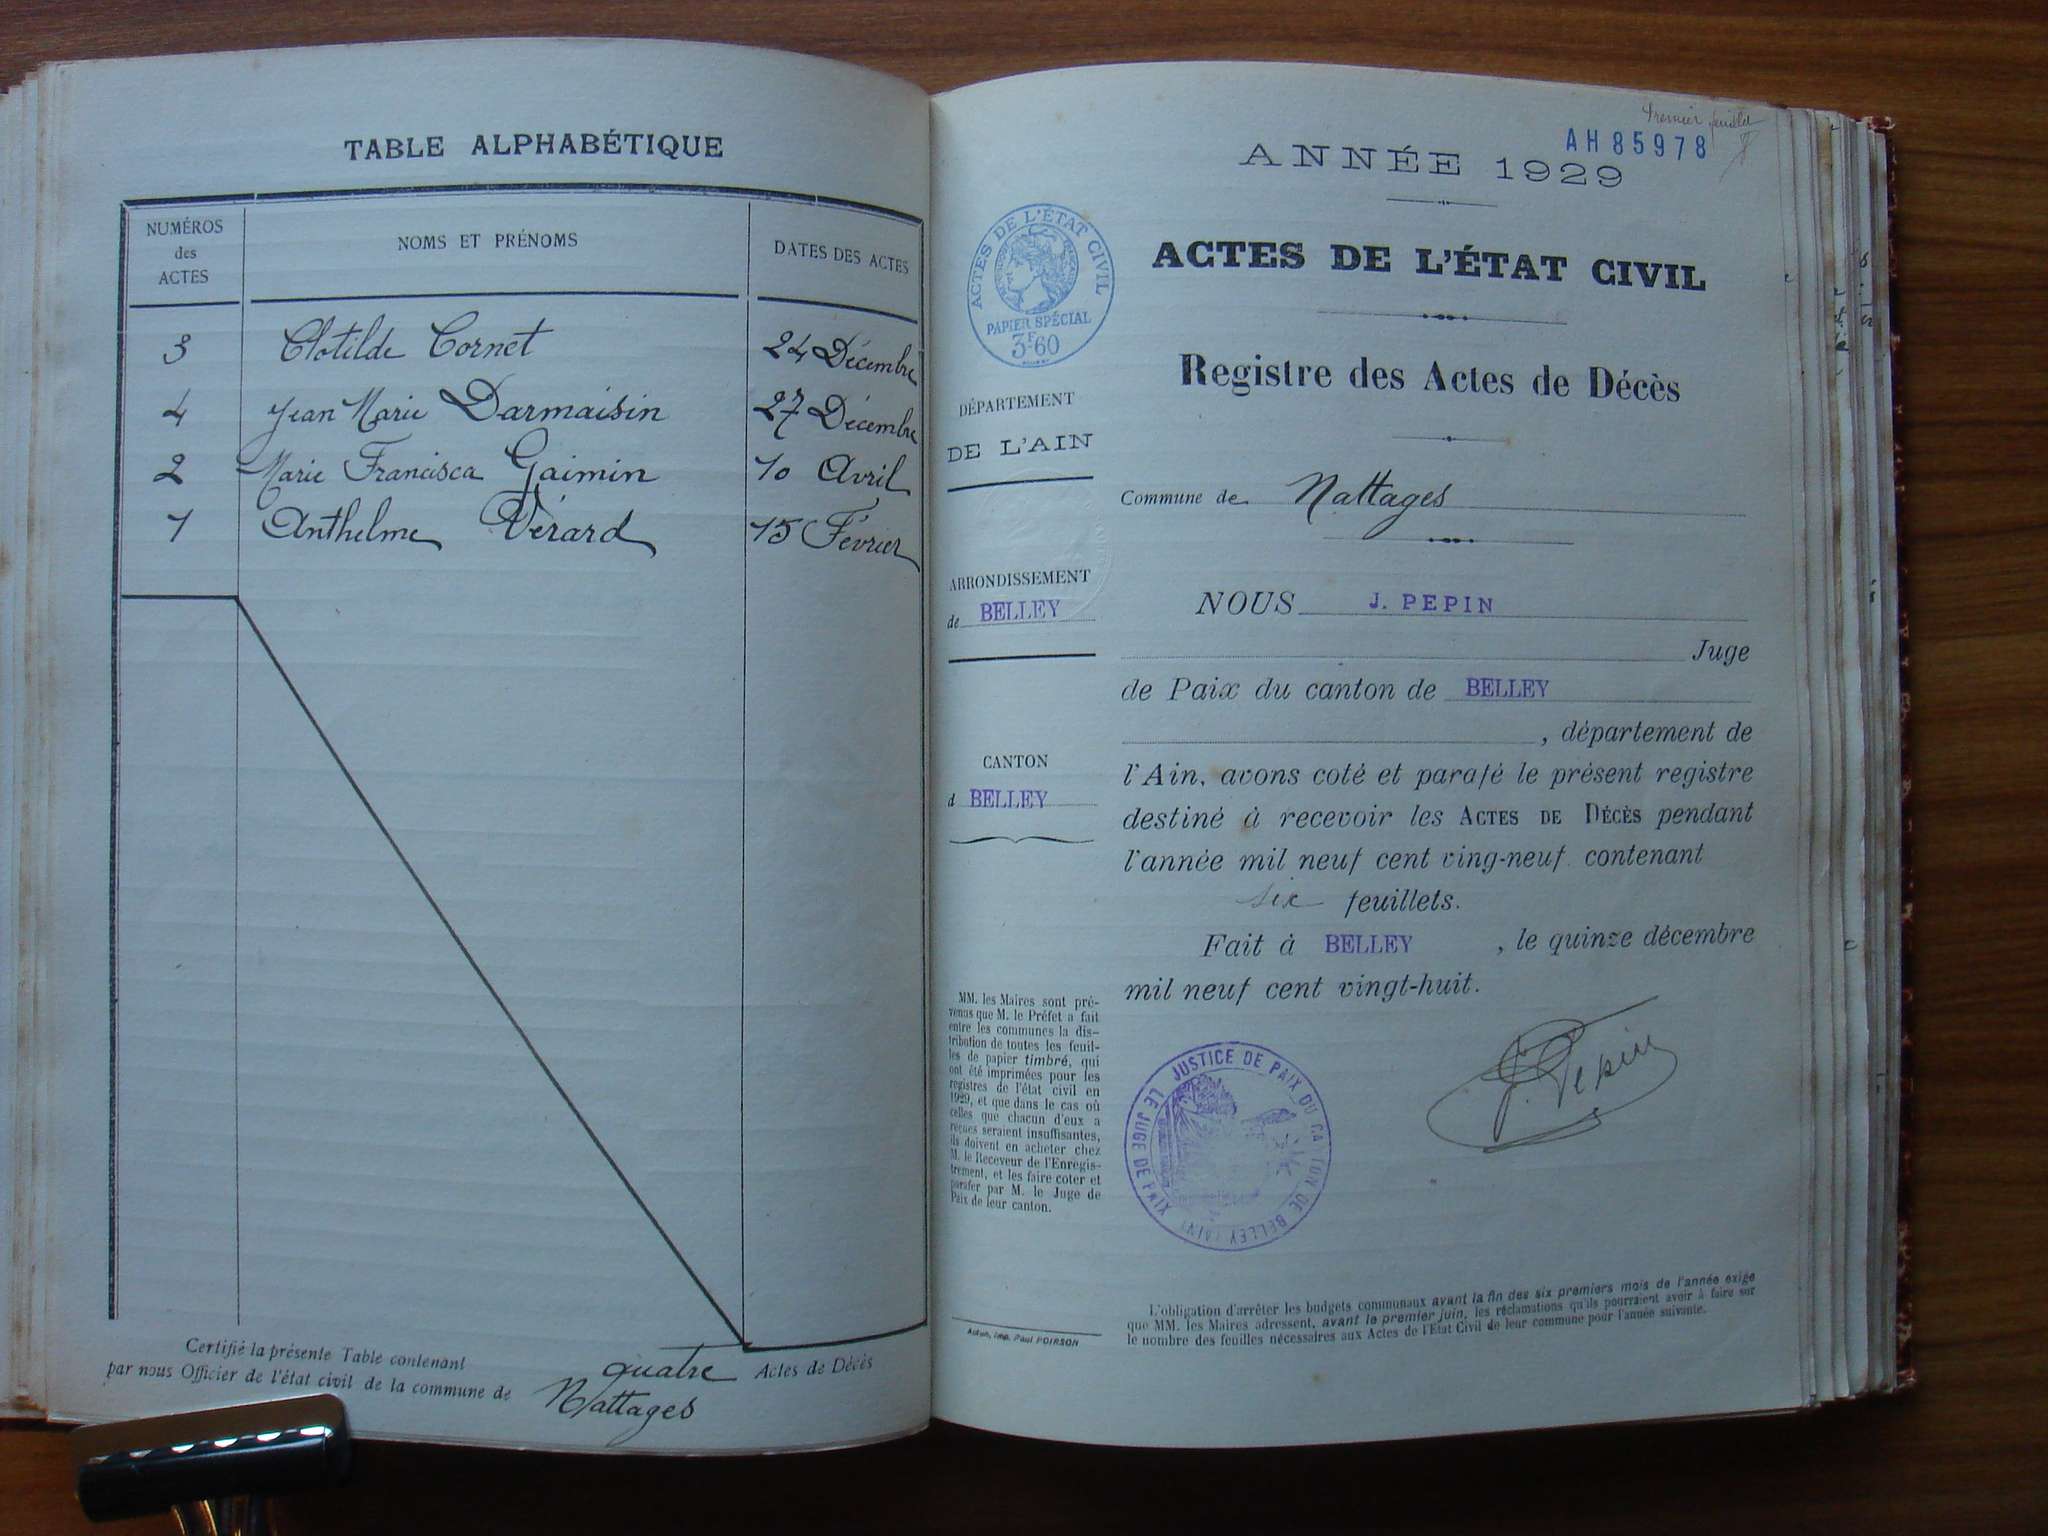 TABLE ALPHABÉTIQUE
NUMÉROS
des
ACTES
NOMS ET PRÉNOMS
DATES DES ACTES
3 Clotilde Cornet 24 Décembre
4 Jean Marie Darmaisin 27 Décembre
2 Marie Francisca Gaimin 10 Avril
1 Anthelme Vérard 15 Février
Certifié la présente Table contenant quatre Actes de Décès
par nous Officier de l'état civil de la commune de Nattages
Premier feuillet
AH85978
ANNÉE 1929
ACTES DE L'ÉTAT CIVIL
PAPIER SPÉCIAL
3F60
ACTES DE L'ÉTAT CIVIL
Registre des Actes de Décès
DÉPARTEMENT
DE L'AIN
Commune de Nattages
ARRONDISSEMENT
de BELLEY
CANTON
d BELLEY
NOUS J. PEPIN
Juge
de Paix du canton de BELLEY
, département de
l'Ain, avons coté et parafé le présent registre
destiné à recevoir les ACTES DE DÉCÈS pendant
l'année mil neuf cent ving-neuf contenant
six feuillets.
Fait à BELLEY , le quinze décembre
mil neuf cent vingt-huit.
J. Pepin
MM. les Maires sont pré-
venus que M. le Préfet a fait
entre les communes la dis-
tribution de toutes les feuil-
les de papier timbré, qui
ont été imprimées pour les
registres de l'état civil en
1929, et que dans le cas où
celles que chacun d'eux a
reçues seraient insuffisantes,
ils doivent en acheter chez
M. le Receveur de l'Enregis-
trement, et les faire coter et
parafer par M. le Juge de
Paix de leur canton.
JUSTICE DE PAIX DU CANTON DE BELLEY (AIN)
LE JUGE DE PAIX
Autun, Imp. Paul POIRSON
L'obligation d'arrêter les budgets communaux avant la fin des six premiers mois de l'année exige
que MM. les Maires adressent, avant le premier juin, les réclamations qu'ils pourraient avoir à faire sur
le nombre des feuilles nécessaires aux Actes de l'État Civil de leur commune pour l'année suivante.